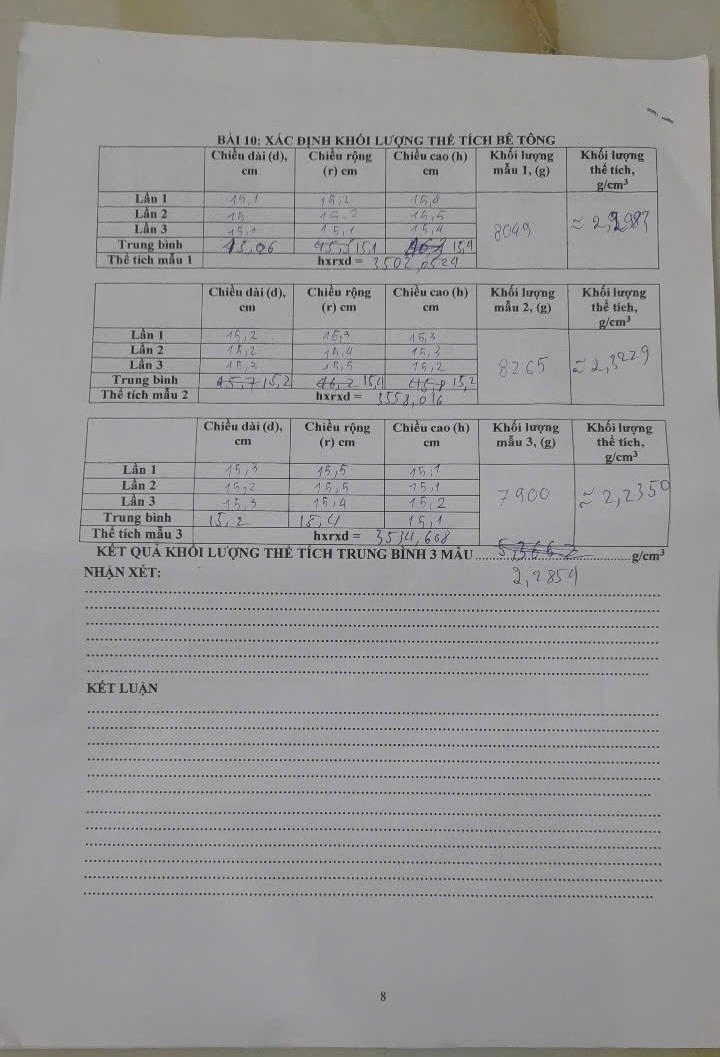 BÀI 10: XÁC ĐỊNH KHỐI LƯỢNG THỂ TÍCH BÊ TÔNG
Chiều dài (d), cm Chiều rộng (r) cm Chiều cao (h) cm Khối lượng mẫu 1, (g) Khối lượng thể tích, g/cm³
Lần 1 15,1 15,2 15,4 8049
Lần 2 15 15,2 15,5
Lần 3 15,1 15,1 15,4
Trung bình 15,06 15,1 15,4
Thể tích mẫu 1 hxrxd = 3502,0524
Chiều dài (d), cm Chiều rộng (r) cm Chiều cao (h) cm Khối lượng mẫu 2, (g) Khối lượng thể tích, g/cm³
Lần 1 15,2 15,3 15,3 8265 ≈ 2,3229
Lần 2 15,2 15,4 15,3
Lần 3 15,3 15,5 15,2
Trung bình 15,2 15,4 15,2
Thể tích mẫu 2 hxrxd = 3558,016
Chiều dài (d), cm Chiều rộng (r) cm Chiều cao (h) cm Khối lượng mẫu 3, (g) Khối lượng thể tích, g/cm³
Lần 1 15,3 15,5 15,1 7900 ≈ 2,2350
Lần 2 15,2 15,5 15,1
Lần 3 15,3 15,4 15,2
Trung bình 15,2 15,4 15,1
Thể tích mẫu 3 hxrxd = 3534,608
KẾT QUẢ KHỐI LƯỢNG THỂ TÍCH TRUNG BÌNH 3 MẪU 5,3667 g/cm³
2,2854
NHẬN XÉT:
KẾT LUẬN
8